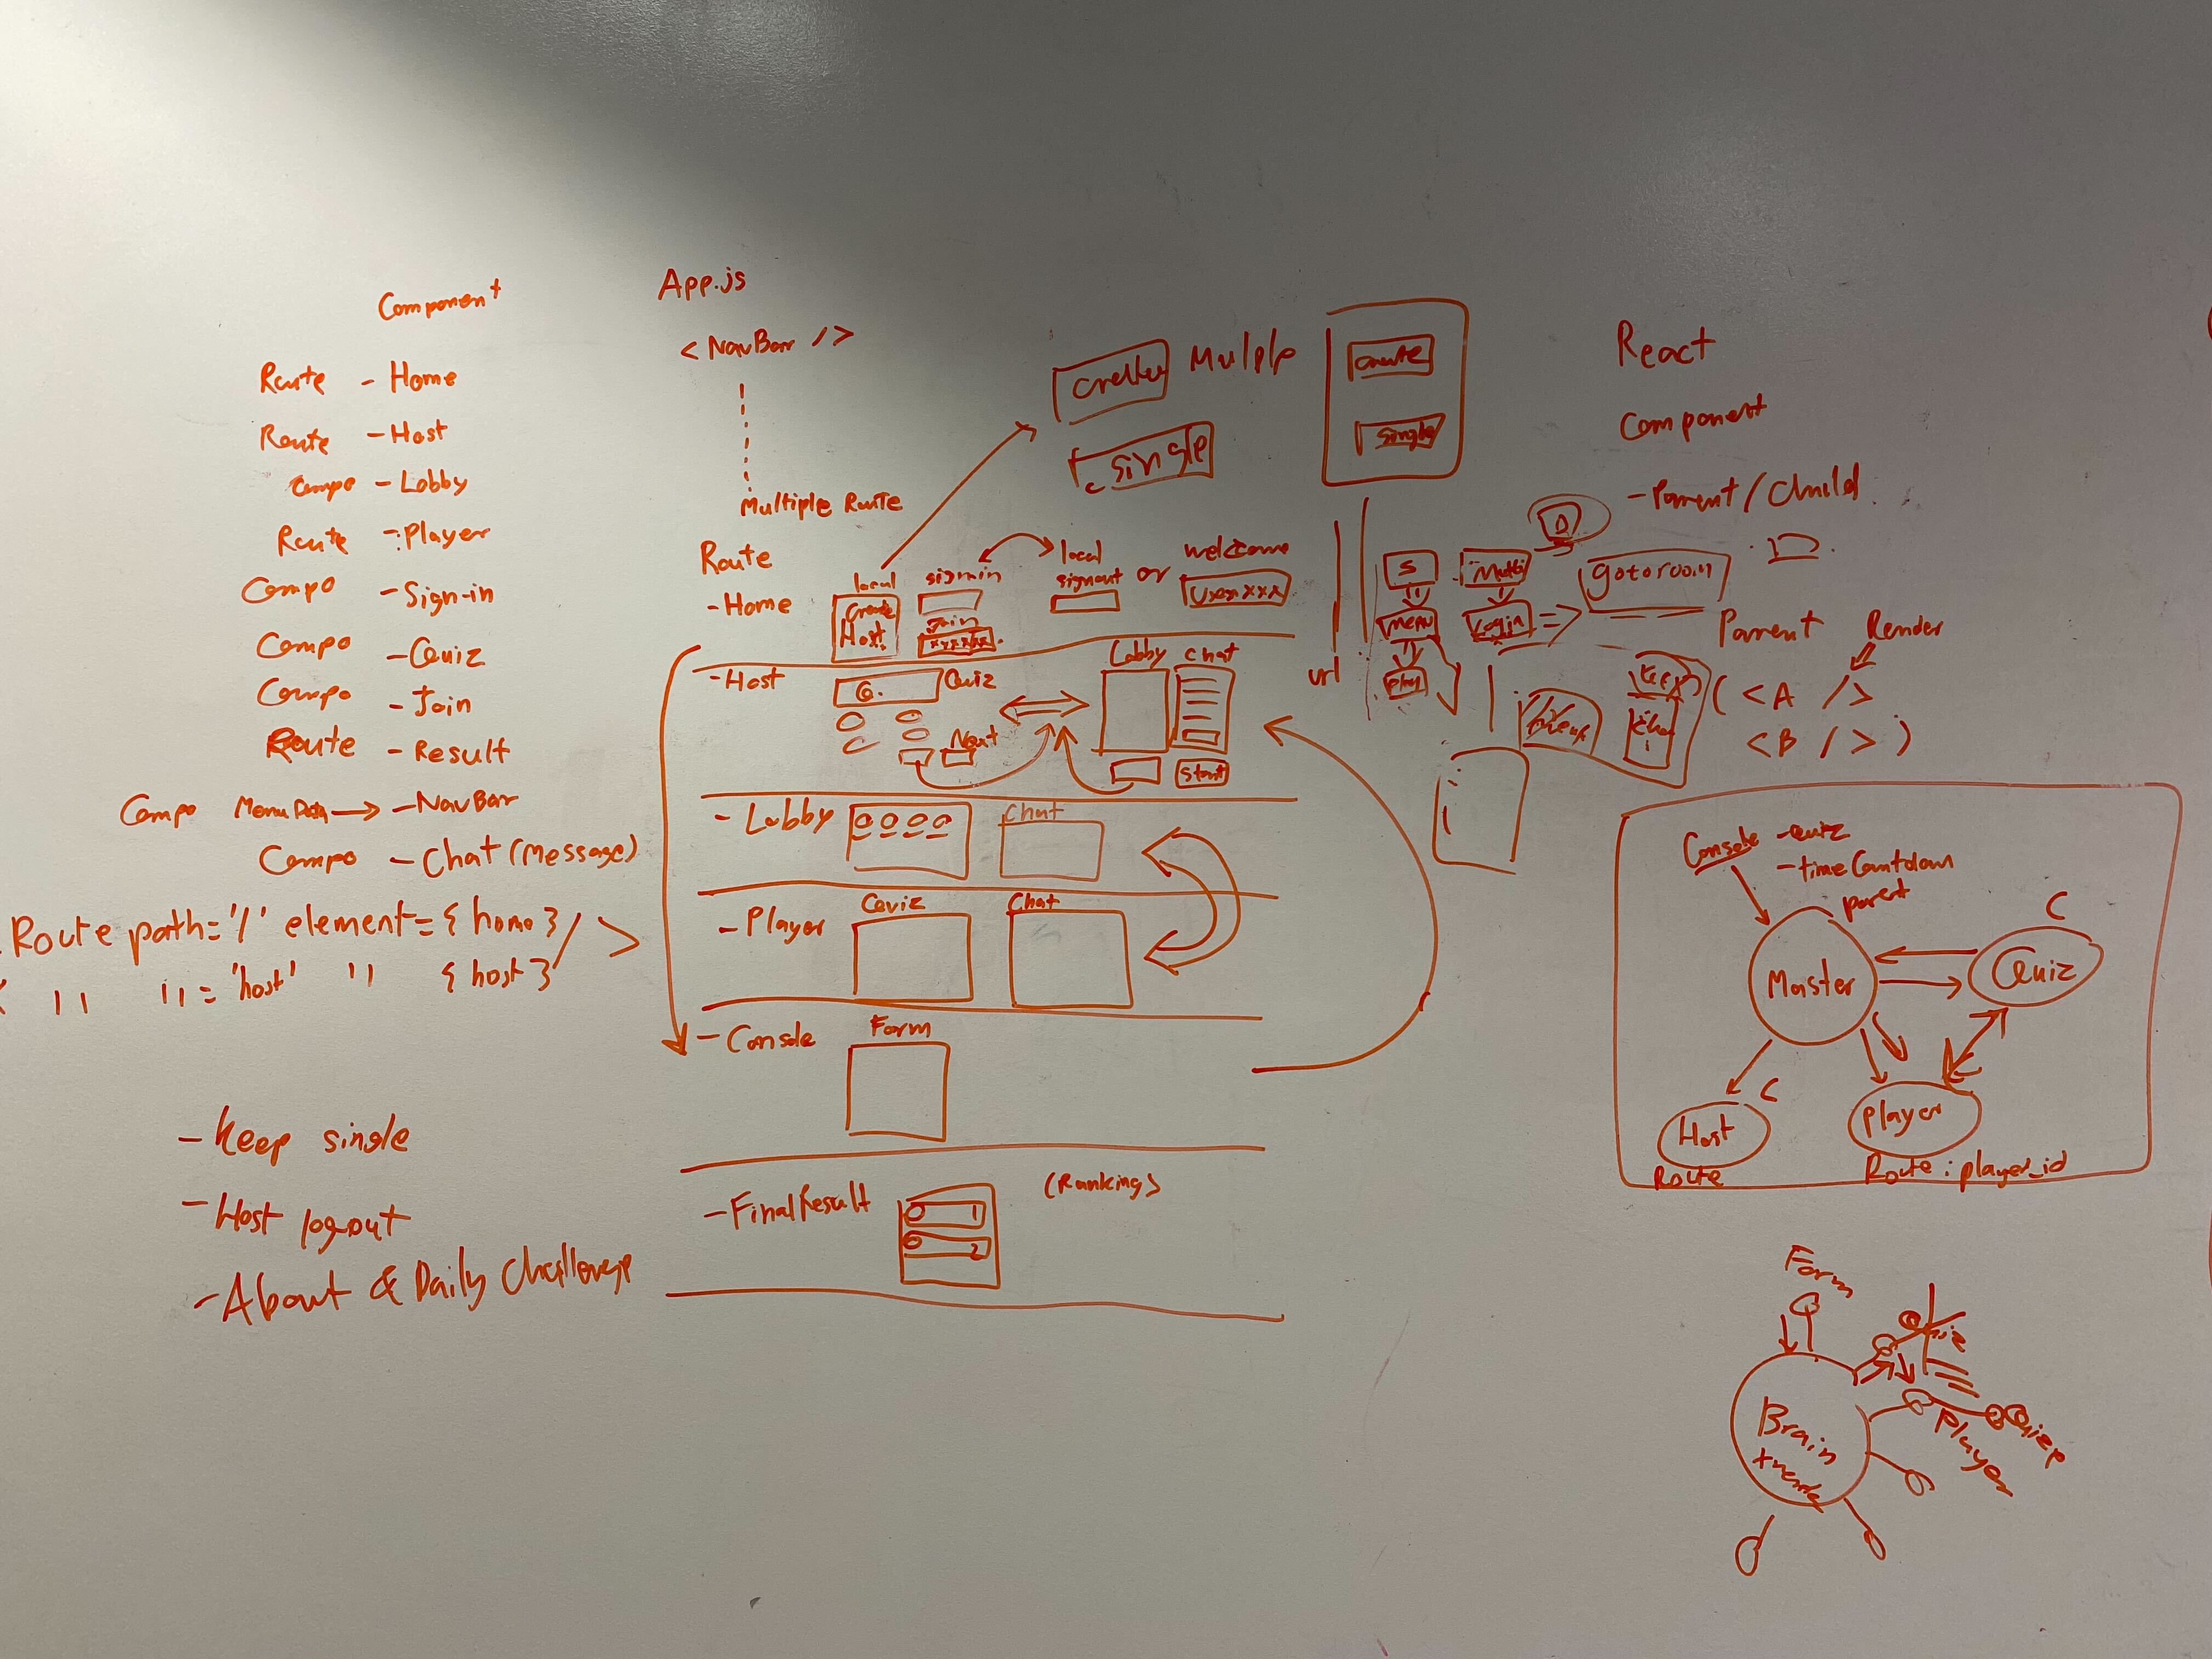 Component
Route - Home
Route - Host
Compo - Lobby
Route - Player
Compo - Sign-in
Compo - Quiz
Compo - Join
Route - Result
Compo Menu Path → - NavBar
Compo - Chat (Message)
Route path='/' element={home}/>
" "='host' " {host}
- Keep single
- Host logout
- About & Daily Challenge
App.js
<NavBar />
Multiple Route
Route
- Home
local
Create
Host
signin
Join
xxxxxx
local
signout or
welcome
Userxxx
- Host
Q.
Quiz
Next
Lobby
Chat
Start
- Lobby
Chat
- Player
Quiz
Chat
- Console
Form
- FinalResult
1
2
(Ranking)
create
single
single
url
S
Menu
play
Multi
Login
gotoroom
React
Component
- Parent / Child
Parent
Render
( <A />
<B /> )
Console
- Quiz
- timeCountdown
parent
Master
C
Quiz
C
Host
Route
player
Route : player_id
Form
Brain
Player